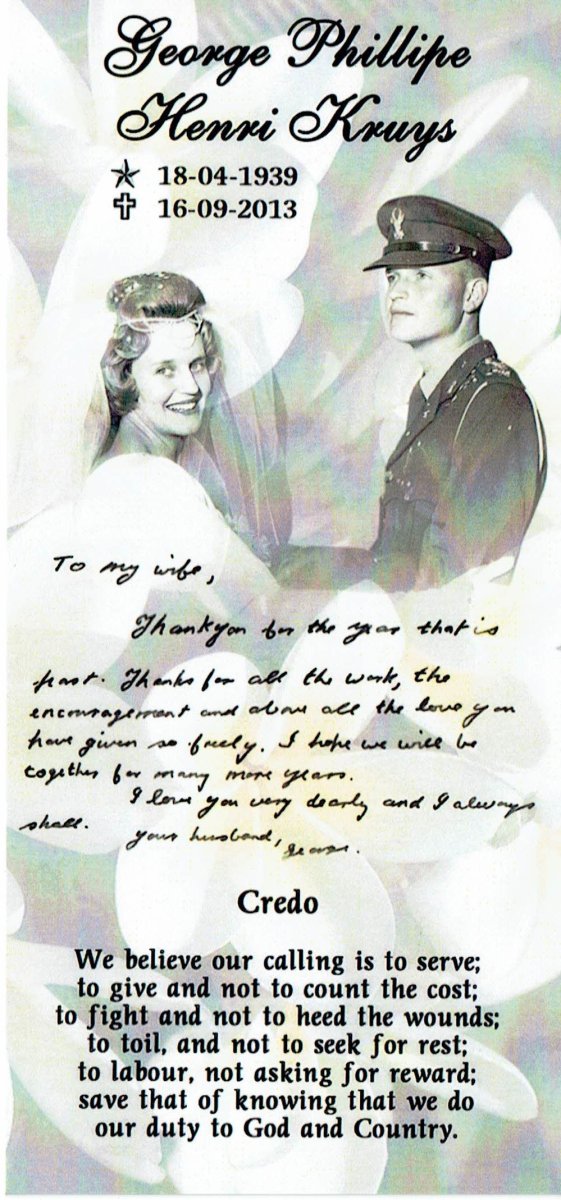 George Phillipe
Henri Kruys
18-04-1939
16-09-2013
To my wife,
Thankyou for the year that is
past. Thanks for all the work, the
encouragement and above all the love you
have given so freely. I hope we will be
together for many more years.
I love you very dearly and I always
shall.
your husband,
George.
Credo
We believe our calling is to serve;
to give and not to count the cost;
to fight and not to heed the wounds;
to toil, and not to seek for rest;
to labour, not asking for reward;
save that of knowing that we do
our duty to God and Country.